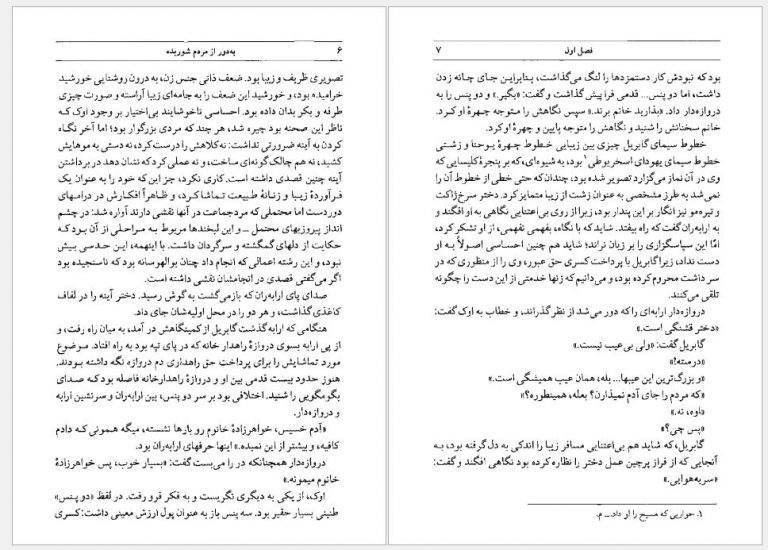 ۶ به‌دور از مردم شوریده
تصویری ظریف و زیبا بود. ضعف ذاتی جنس زن، به درون روشنایی خورشید
خزامیده بود، و خورشید این ضعف را به جامه‌ای زیبا آراسته و صورت چیزی
طرفه و بکر بدان داده بود. احساسی ناخوشایند بی‌اختیار بر وجود اوک که
ناظر این صحنه بود چیره شد، هر چند که مردی بزرگوار بود؛ اما آخر نگاه
کردن به آینه ضرورتی نداشت: نه کلاهش را درست کرد، نه دستی به موهایش
کشید، نه هم چالک گونه‌ای ساخت، و نه عملی کرد که نشان دهد در برداشتن
آینه چنین قصدی داشته است. کاری نکرد، جز این که خود را به عنوان یک
فرآوردهٔ زیبا و زنانهٔ طبیعت تماشا کرد، و ظاهراً افکارش در درامهای
دوردست اما محتملی که مردم جماعت در آنها نقشی دارند آواره شد: در چشم
انداز پیروزیهای محتمل ــ و این لبخندها مربوط به مراحلی از آن بود که
حکایت از دلهای گمگشته و سرگردان داشت. با اینهمه، این حدسی بیش
نبود، و این رشته اعمالی که انجام داد چنان بوالهوسانه بود که ناسنجیده بود
اگر می‌گفتی قصدی در انجامشان نقشی داشته است.
صدای پای ارابه‌ران که بازمی‌گشت به گوش رسید. دختر آینه را در لفاف
کاغذی گذاشت، و هر دو را در محل اولیه‌شان جای داد.
هنگامی که ارابه گذشت گابریل از کمینگاهش در آمد، به میان راه رفت، و
از پی ارابه بسوی دروازهٔ راهدار خانه که در پای تپه بود به راه افتاد. موضوع
مورد تماشایش را برای پرداخت حق راهداری دم دروازه نگه داشته بودند.
هنوز حدود بیست قدمی بین او و دروازهٔ راهدارخانه فاصله بود که صدای
بگومگویی را شنید. اختلافی بود بر سر دو پنس، بین ارابه‌ران و سرنشین ارابه
و دروازه‌دار.
«آدم خسیس، خواهرزادهٔ خانوم رو بارها نشسته، میگه همونی که دادم
کافیه، و بیشتر از این نمیده.» اینها حرفهای ارابه‌ران بود.
دروازه‌دار همچنانکه در را می‌بست گفت: «بسیار خوب، پس خواهرزادهٔ
خانوم میمونه.»
اوک، از یکی به دیگری نگریست و به فکر فرو رفت. در لفظ «دو پنس»
طنینی بسیار حقیر بود. سه پنس باز به عنوان پول ارزش معینی داشت: کسری
فصل اول ۷
بود که نبودش کار دستمزدها را لنگ می‌گذاشت، بنابراین جای چانه زدن
داشت، اما دو پنس... قدمی فرا پیش گذاشت و گفت: «بگیر.» و دو پنس را به
دروازه‌دار داد. «بذارید خانم برند.» سپس نگاهش را متوجه چهرهٔ او کرد.
خانم سخنانش را شنید و نگاهش را متوجه پایین و چهرهٔ او کرد.
خطوط سیمای گابریل چیزی بین زیبایی خطوط چهرهٔ یوحنا و زشتی
خطوط سیمای یهودای اسخریوطی۱ بود، به شیوه‌ای، که بر پنجرهٔ کلیسایی که
وی در آن نماز می‌گزارد تصویر شده بود، چندان که حتی خطی از خطوط آن را
نمی‌شد به طرز مشخصی به عنوان زشت از زیبا متمایز کرد. دختر سرخ‌ژاکت
و تیره‌مو نیز انگار بر این پندار بود، زیرا از روی بی‌اعتنایی نگاهی به او افگند و
به ارابه‌ران گفت که راه بیفتد. شاید که با نگاه، بفهمی نفهمی، از او تشکر کرد،
امّا این سپاسگزاری را بر زبان نراند؛ شاید هم چنین احساسی اصولاً به او
دست نداد، زیرا گابریل با پرداخت کسری حق عبور، وی را از منظوری که در
سر داشت محروم کرده بود، و می‌دانیم که زنها خدمتی از این دست را چگونه
تلقی می‌کنند.
دروازه‌دار ارابه‌ای را که دور می‌شد از نظر گذراند، و خطاب به اوک گفت:
«دختر قشنگی است.»
گابریل گفت: «ولی بی‌عیب نیست.»
«درسته!»
«و بزرگ‌ترین این عیبها... بله، همان عیب همیشگی است.»
«که مردم را جای آدم نمیذارن؟ بعله، همینطوره؟»
«اوه، نه.»
«پس چی؟»
گابریل، که شاید هم بی‌اعتنایی مسافر زیبا را اندکی به دل گرفته بود، به
آنجایی که از فراز پرچین عمل دختر را نظاره کرده بود نگاهی افگند و گفت:
«سربه‌هوایی.»
۱. حواریی که مسیح را لو داد.ــ م.